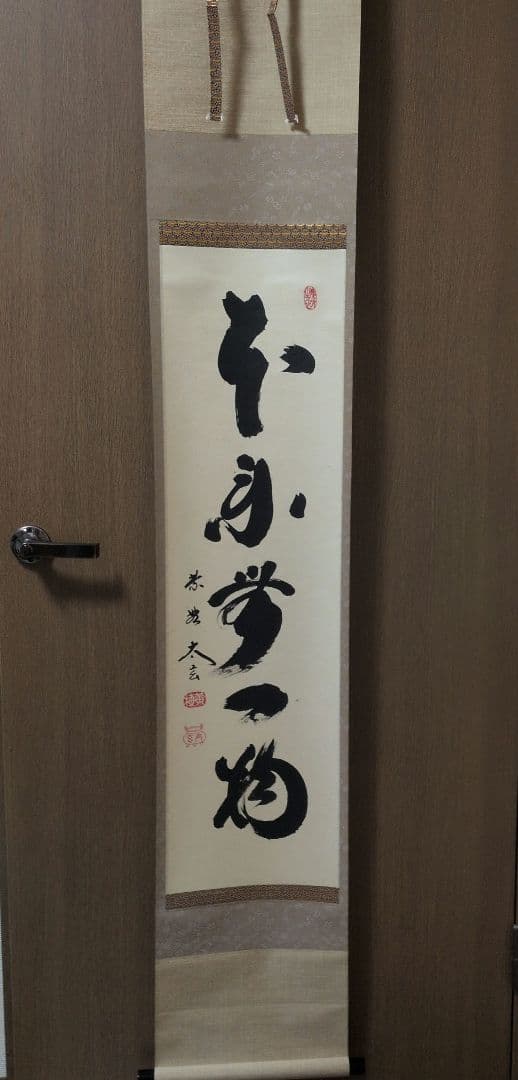 本来無一物
紫野 太玄